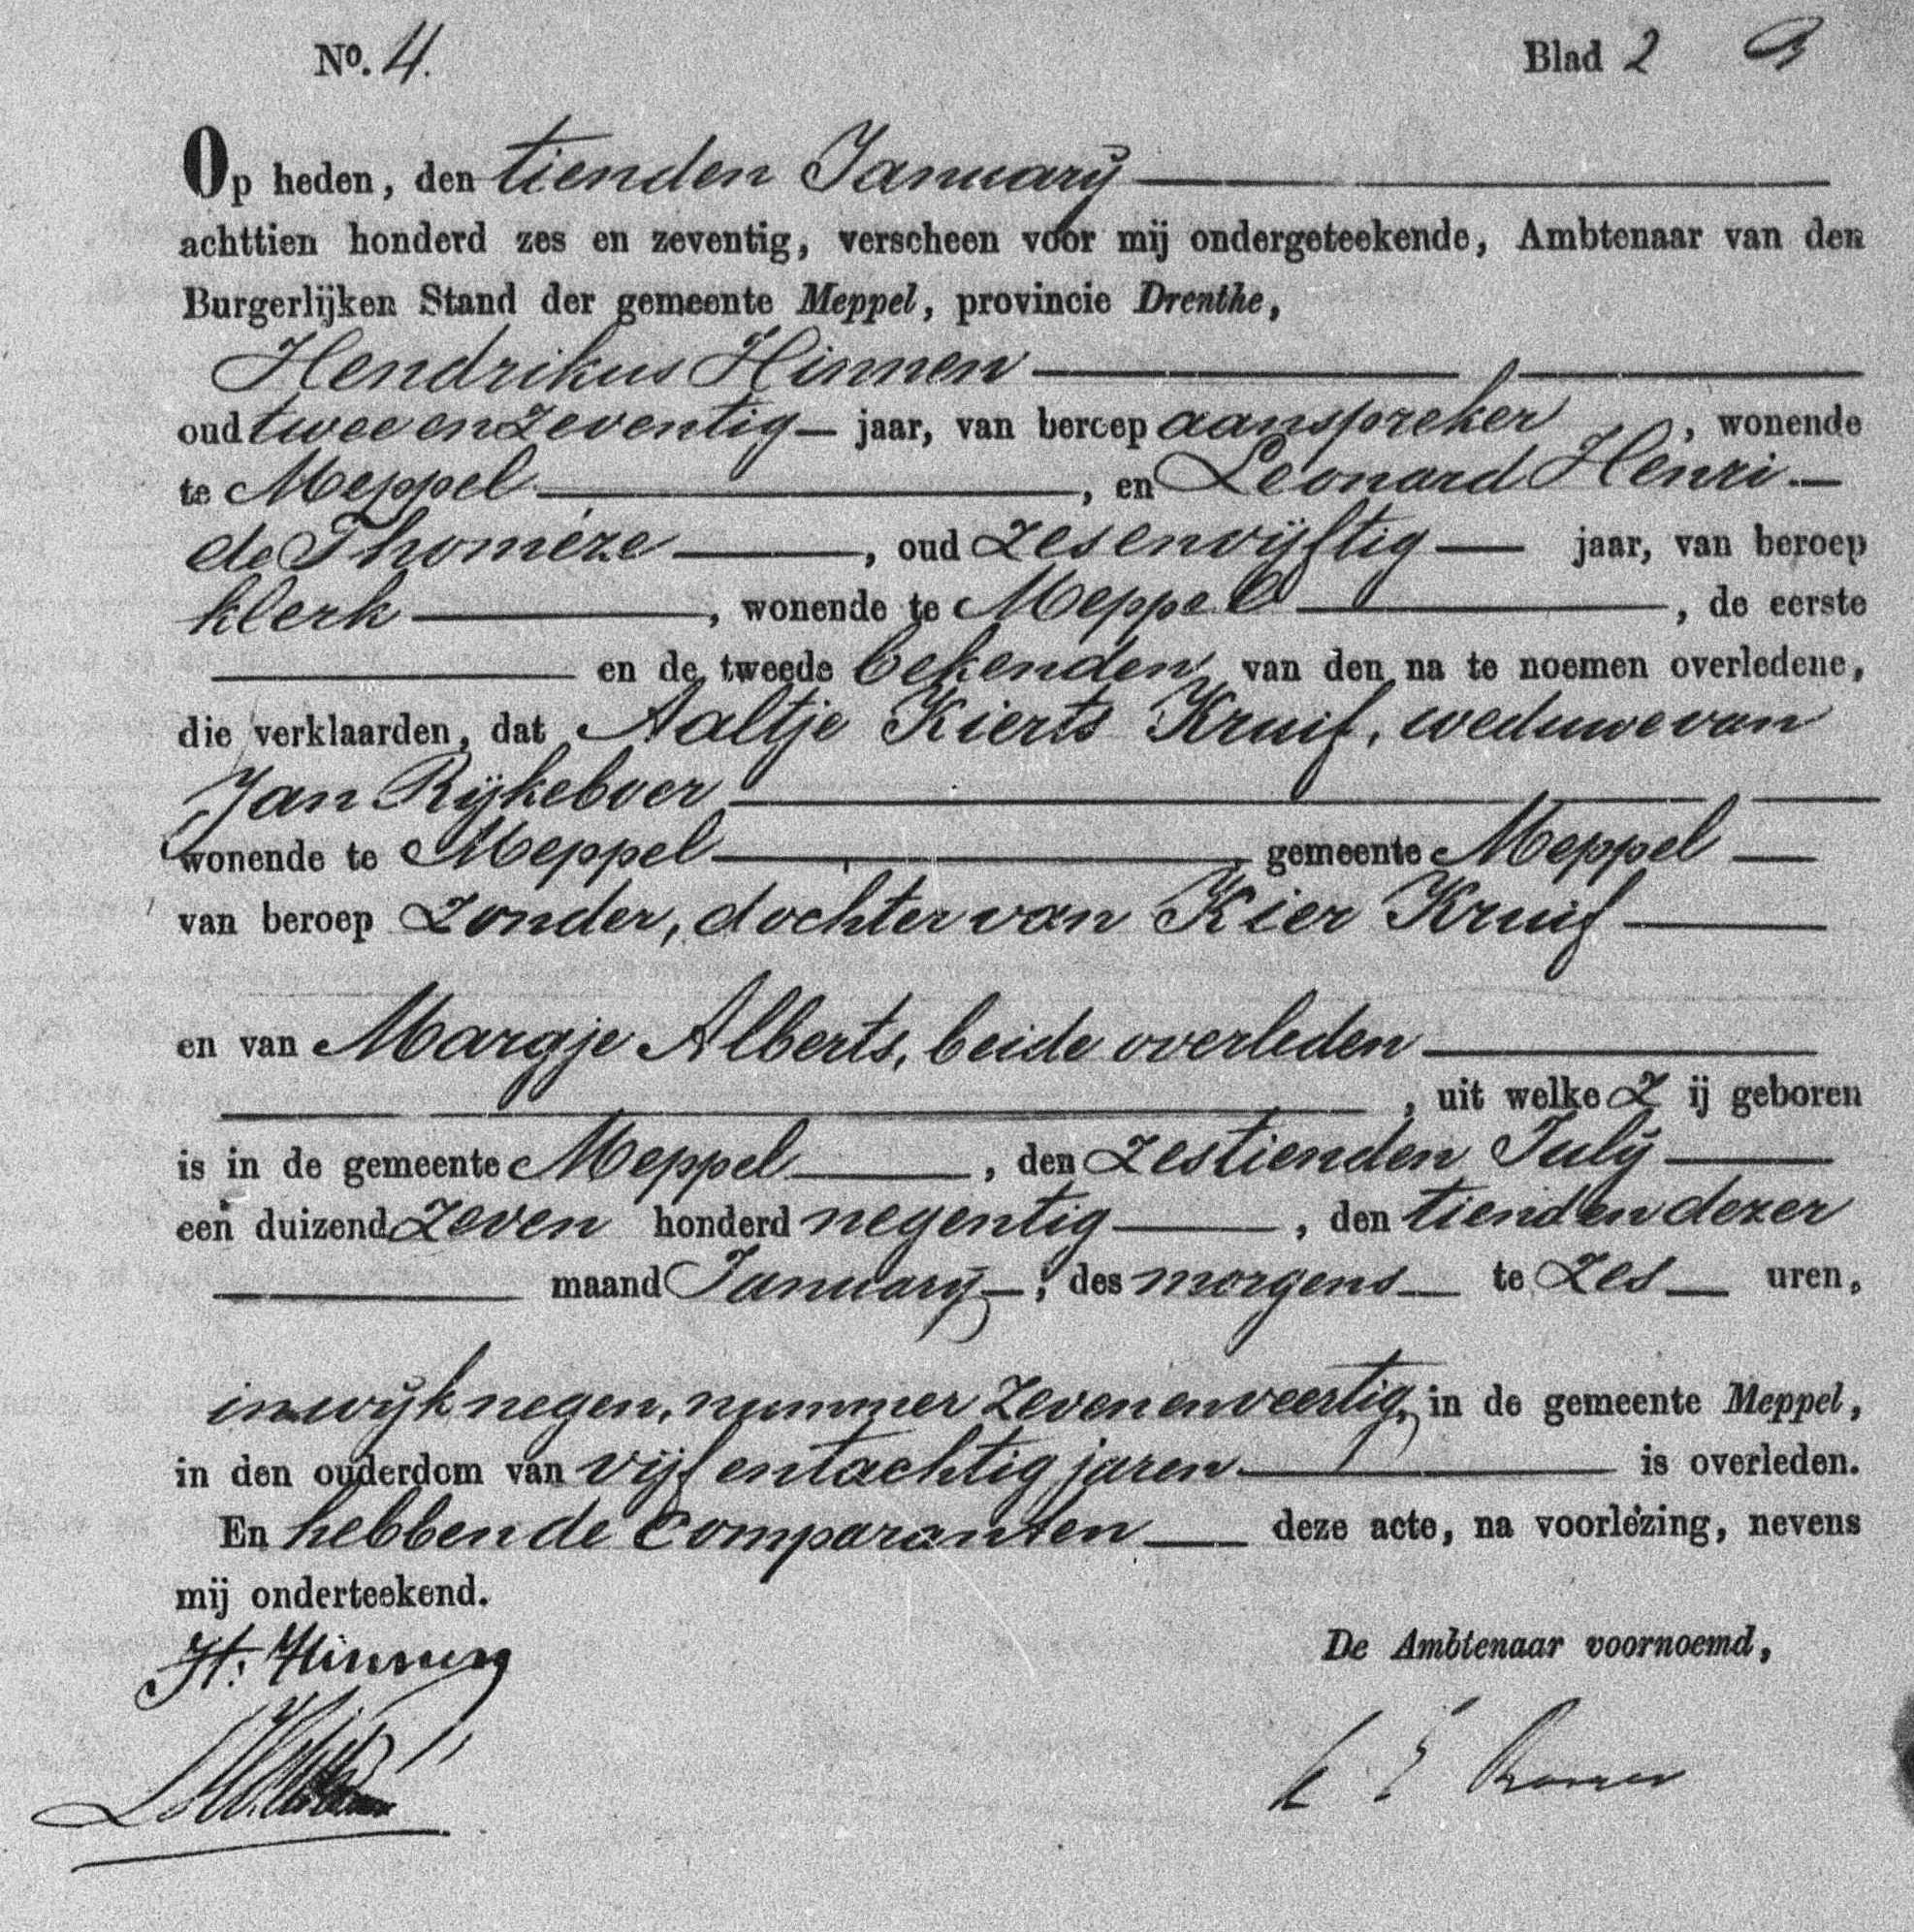 No. 4. Blad 2
Op heden, den tienden January
achttien honderd zes en zeventig, verscheen voor mij ondergeteekende, Ambtenaar van den
Burgerlijken Stand der gemeente Meppel, provincie Drenthe,
Hendrikus Hinnen
oud twee en zeventig jaar, van beroep aanspreker, wonende
te Meppel, en Leonard Henri
de Thomeze, oud zesenvijftig jaar, van beroep
klerk, wonende te Meppel, de eerste
en de tweede bekenden van den na te noemen overledene,
die verklaarden, dat Aaltje Kierts Kruif, weduwe van
Jan Rijkeboer
wonende te Meppel gemeente Meppel
van beroep zonder, dochter van Kier Kruif
en van Margje Alberts, beide overleden
, uit welke Z ij geboren
is in de gemeente Meppel, den zestienden July
een duizend zeven honderd negentig, den tienden dezer
maand January, des morgens te zes uren,
in wijk negen, nummer zevenenveertig, in de gemeente Meppel,
in den ouderdom van vijf entachtig jaren is overleden.
En hebben de Comparanten deze acte, na voorlezing, nevens
mij onderteekend.
H. Hinnen
De Ambtenaar voornoemd,